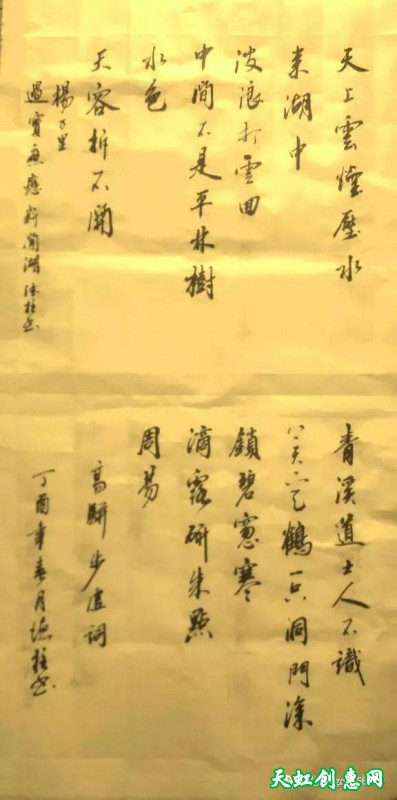 天上雲煙壓水
来湖中
波浪打雲回
中間不是平林樹
水色
天容拆不開
楊万里
過寶應縣新開湖 德柱书
青溪道士人不識
上天下天鶴一只洞門深
鎖碧窗寒
滴露研朱點
周易
高駢步虛詞
丁酉年春月德柱书
天虹创惠网